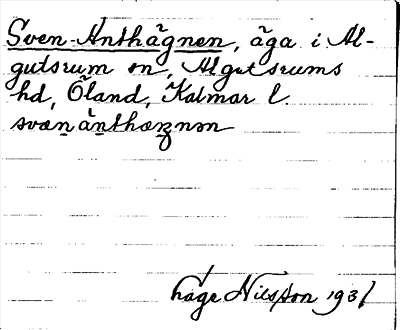 Sven-Anthägnen, äga i Al-
gutsrum sn, Algutsrums
hd, Öland, Kalmar l.
svæn änthæŋnən
Hage Nilsson 1931